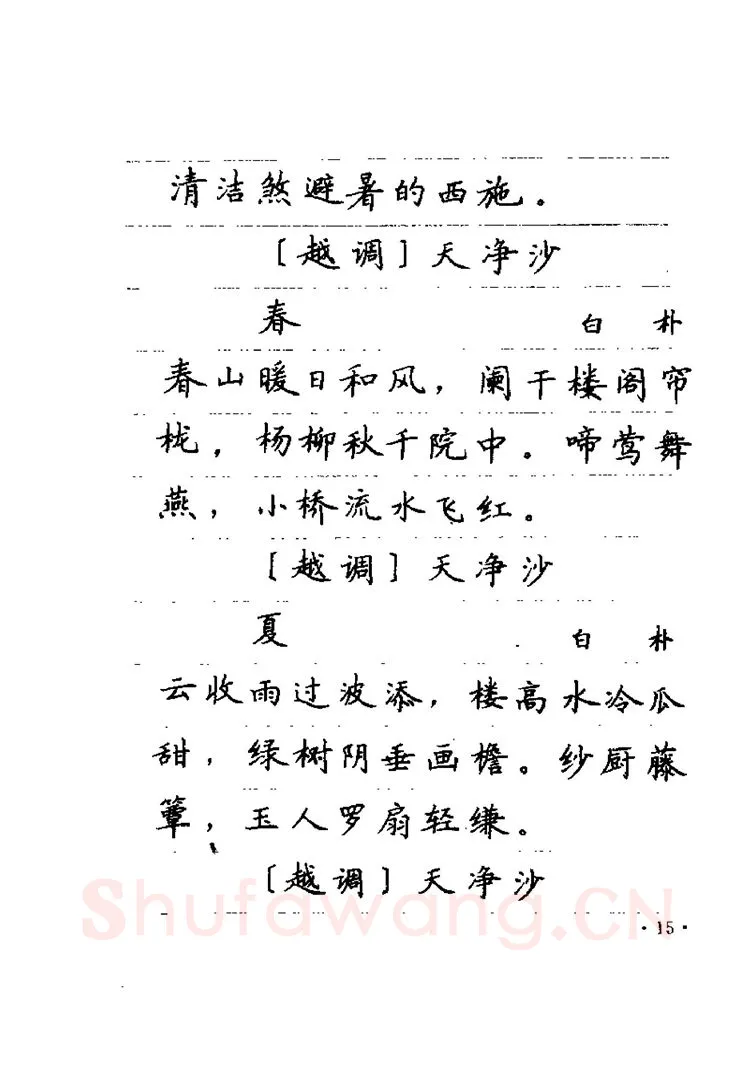 清洁煞避暑的西施。
〔越调〕天净沙
春 白 朴
春山暖日和风，阑干楼阁帘
栊，杨柳秋千院中。啼莺舞
燕，小桥流水飞红。
〔越调〕天净沙
夏 白 朴
云收雨过波添，楼高水冷瓜
甜，绿树阴垂画檐。纱厨藤
簟，玉人罗扇轻缣。
〔越调〕天净沙
Shufawang.CN
·15·